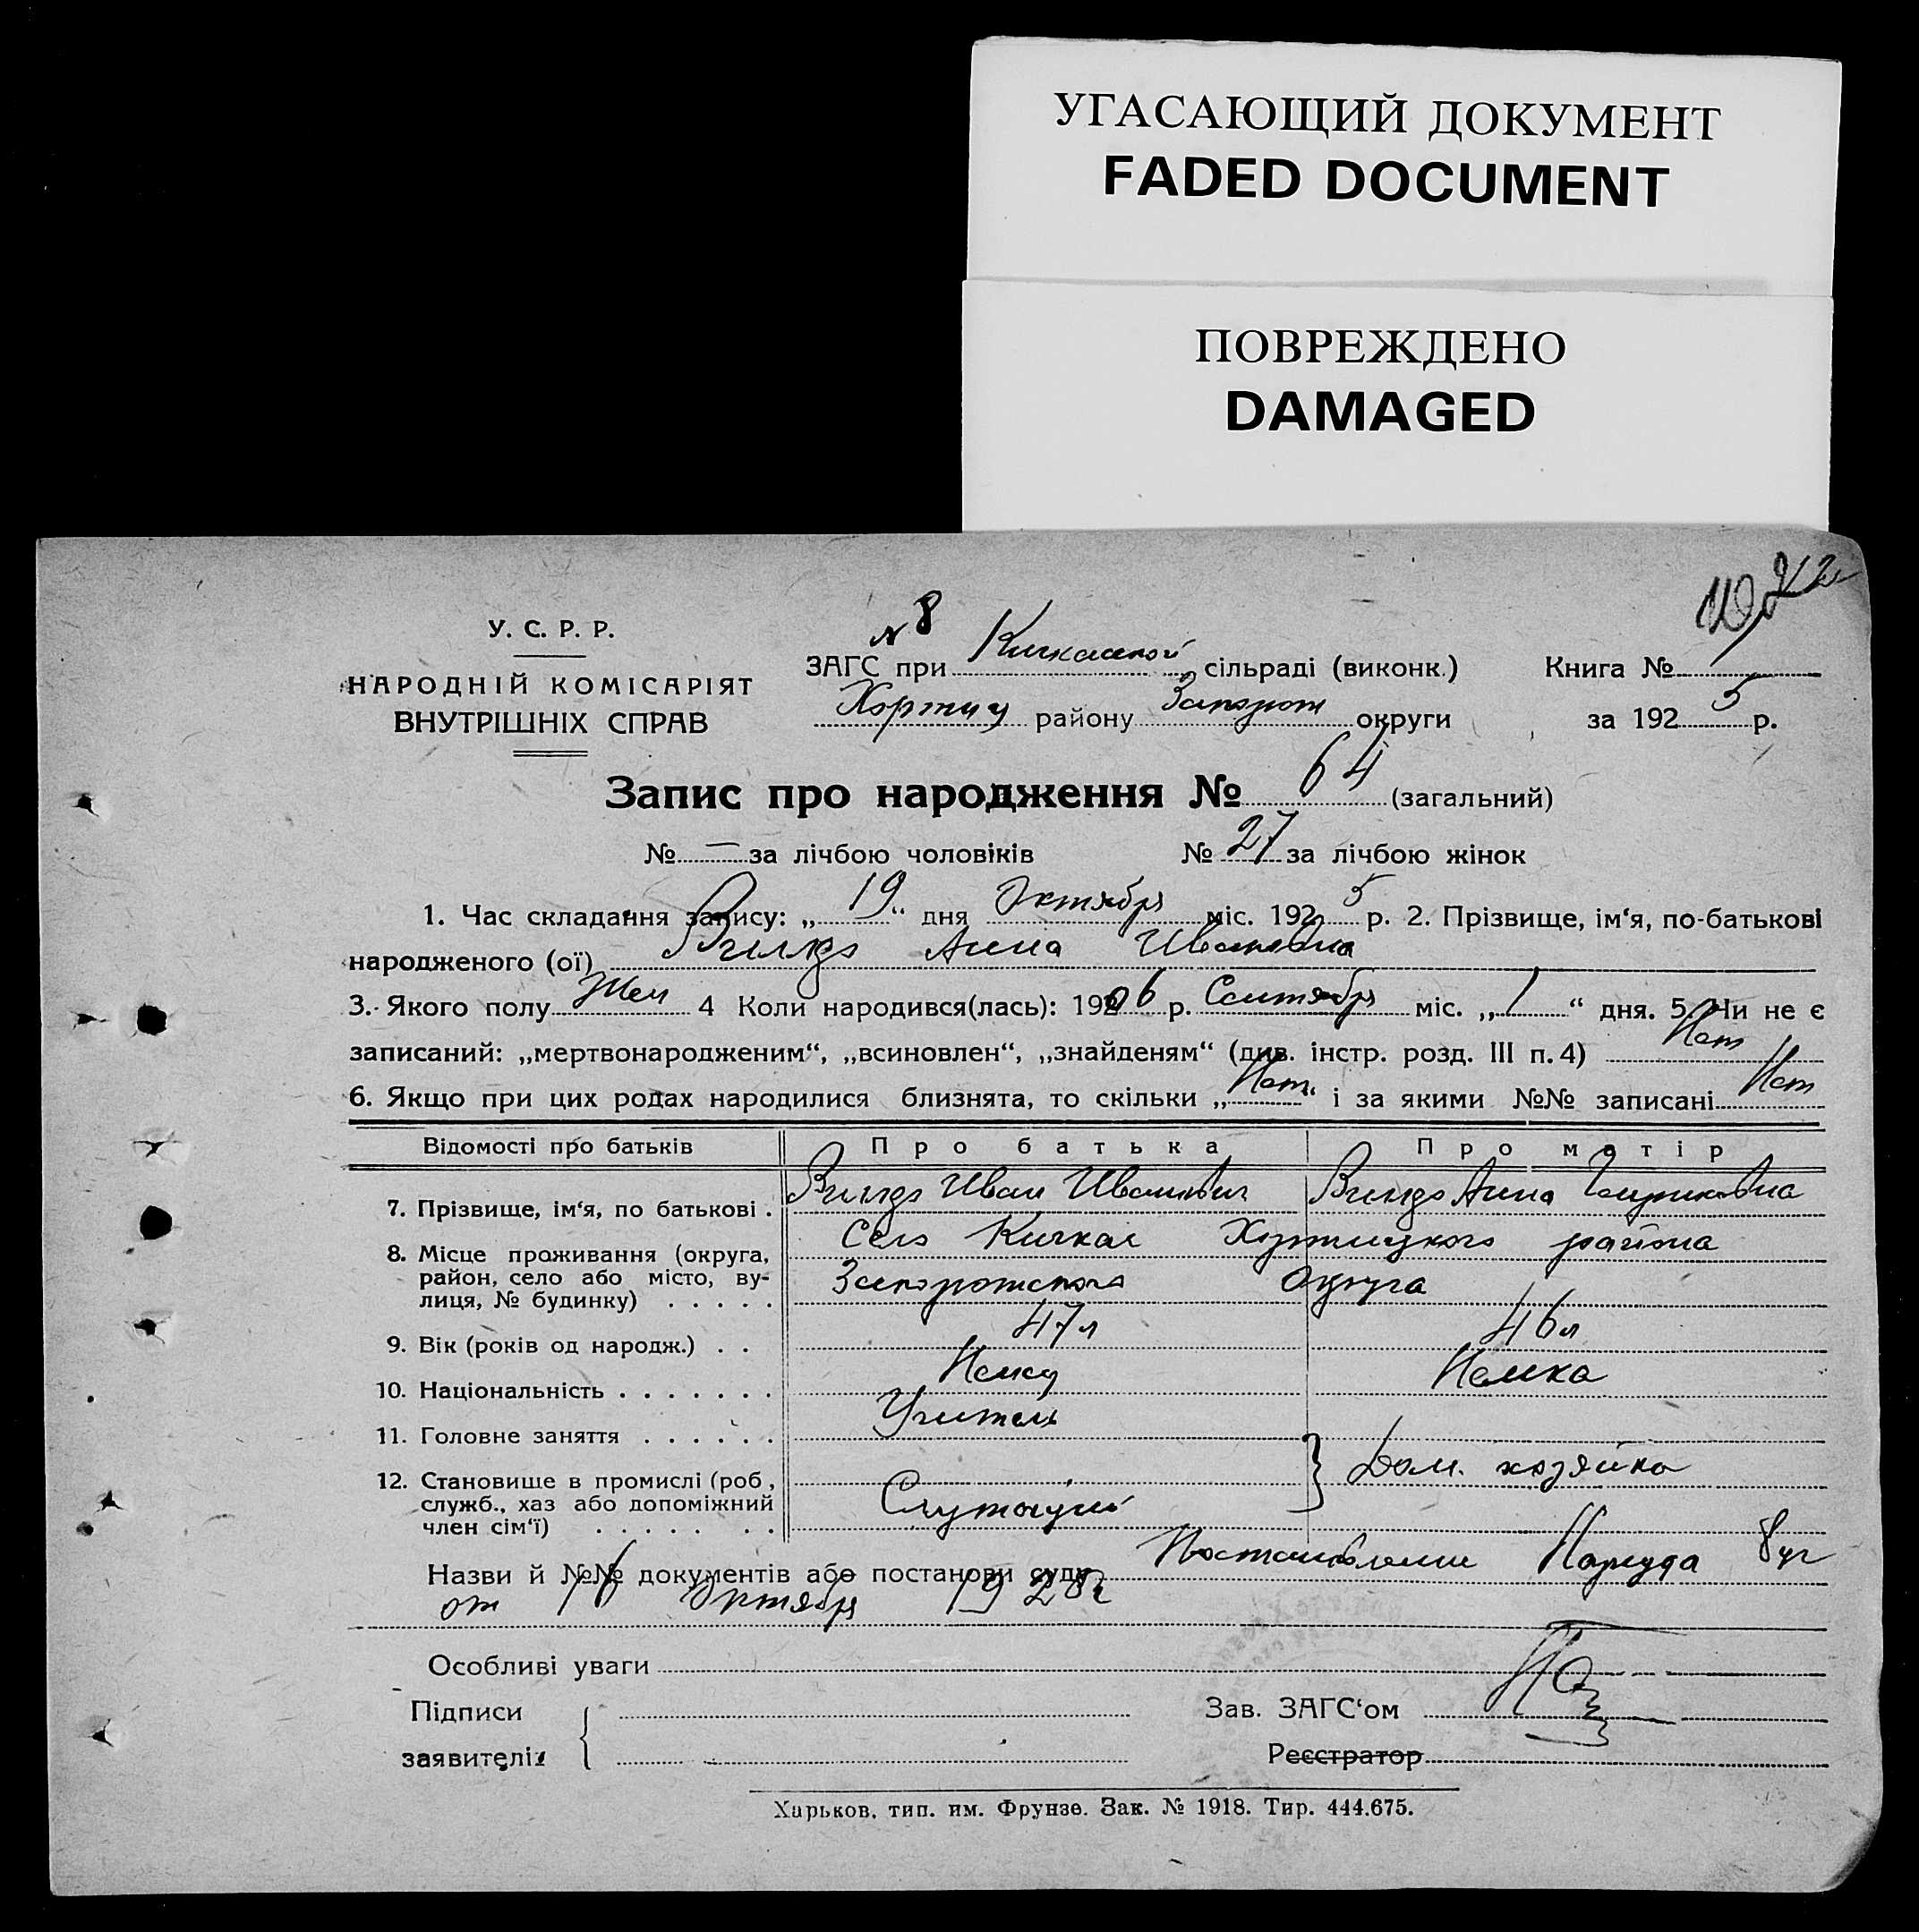 УГАСАЮЩИЙ ДОКУМЕНТ
FADED DOCUMENT
ПОВРЕЖДЕНО
DAMAGED
У. С. Р. Р.
НАРОДНІЙ КОМІСАРІЯТ
ВНУТРІШНІХ СПРАВ
№ 8
ЗАГС при Кичкасской сільраді (виконк.)
Хортиц району Запорож округи
Книга №
за 1925 р.
Запис про народження № 64 (загальний)
№ — за лічбою чоловіків № 27 за лічбою жінок
1. Час складання запису: „19“ дня Октября міс. 1925 р. 2. Прізвище, ім‘я, по-батькові
народженого (ої) Анна Ивановна
3. Якого полу Жен 4 Коли народився(лась): 1906 р. Сентября міс. „1“ дня. 5. Чи не є
записаний: „мертвонародженим“, „всиновлен“, „знайденям“ (див. інстр. розд. III п. 4) Нет
6. Якщо при цих родах народилися близнята, то скільки „Нет“ і за якими №№ записані Нет
Відомості про батьків Про батька Про матір
7. Прізвище, ім‘я, по батькові . Иван Иванович Анна
8. Місце проживання (округа, Село Кичкас Хортицкого района
район, село або місто, ву- Запорожского Округа
лиця, № будинку) . . . . .
9. Вік (років од народж.) . . 47 л 46 л
10. Національність . . . . . . . Немец Немка
11. Головне заняття . . . . . . Учитель
12. Становище в промислі (роб., Дом. хозяйка
служб., хаз або допоміжний Служащий
член сім‘ї) . . . . . . .
Назви й №№ документів або постанови суду Нарсуда 8 уч
от 16 Октября 1925 г
Особливі уваги
Підписи
заявителів
Зав. ЗАГС‘ом
Реєстратор
Харьков, тип. им. Фрунзе. Зак. № 1918. Тир. 444.675.